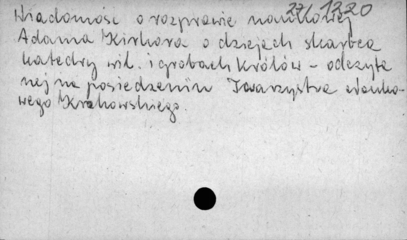 27/1220
Wiadomość o rozprawie naukowej
Adama Kirkora o dziejach skarbca
katedry wil. i grobach królów – odczyta
nej na posiedzeniu Towarzystwa Nauko-
wego Krakowskiego.